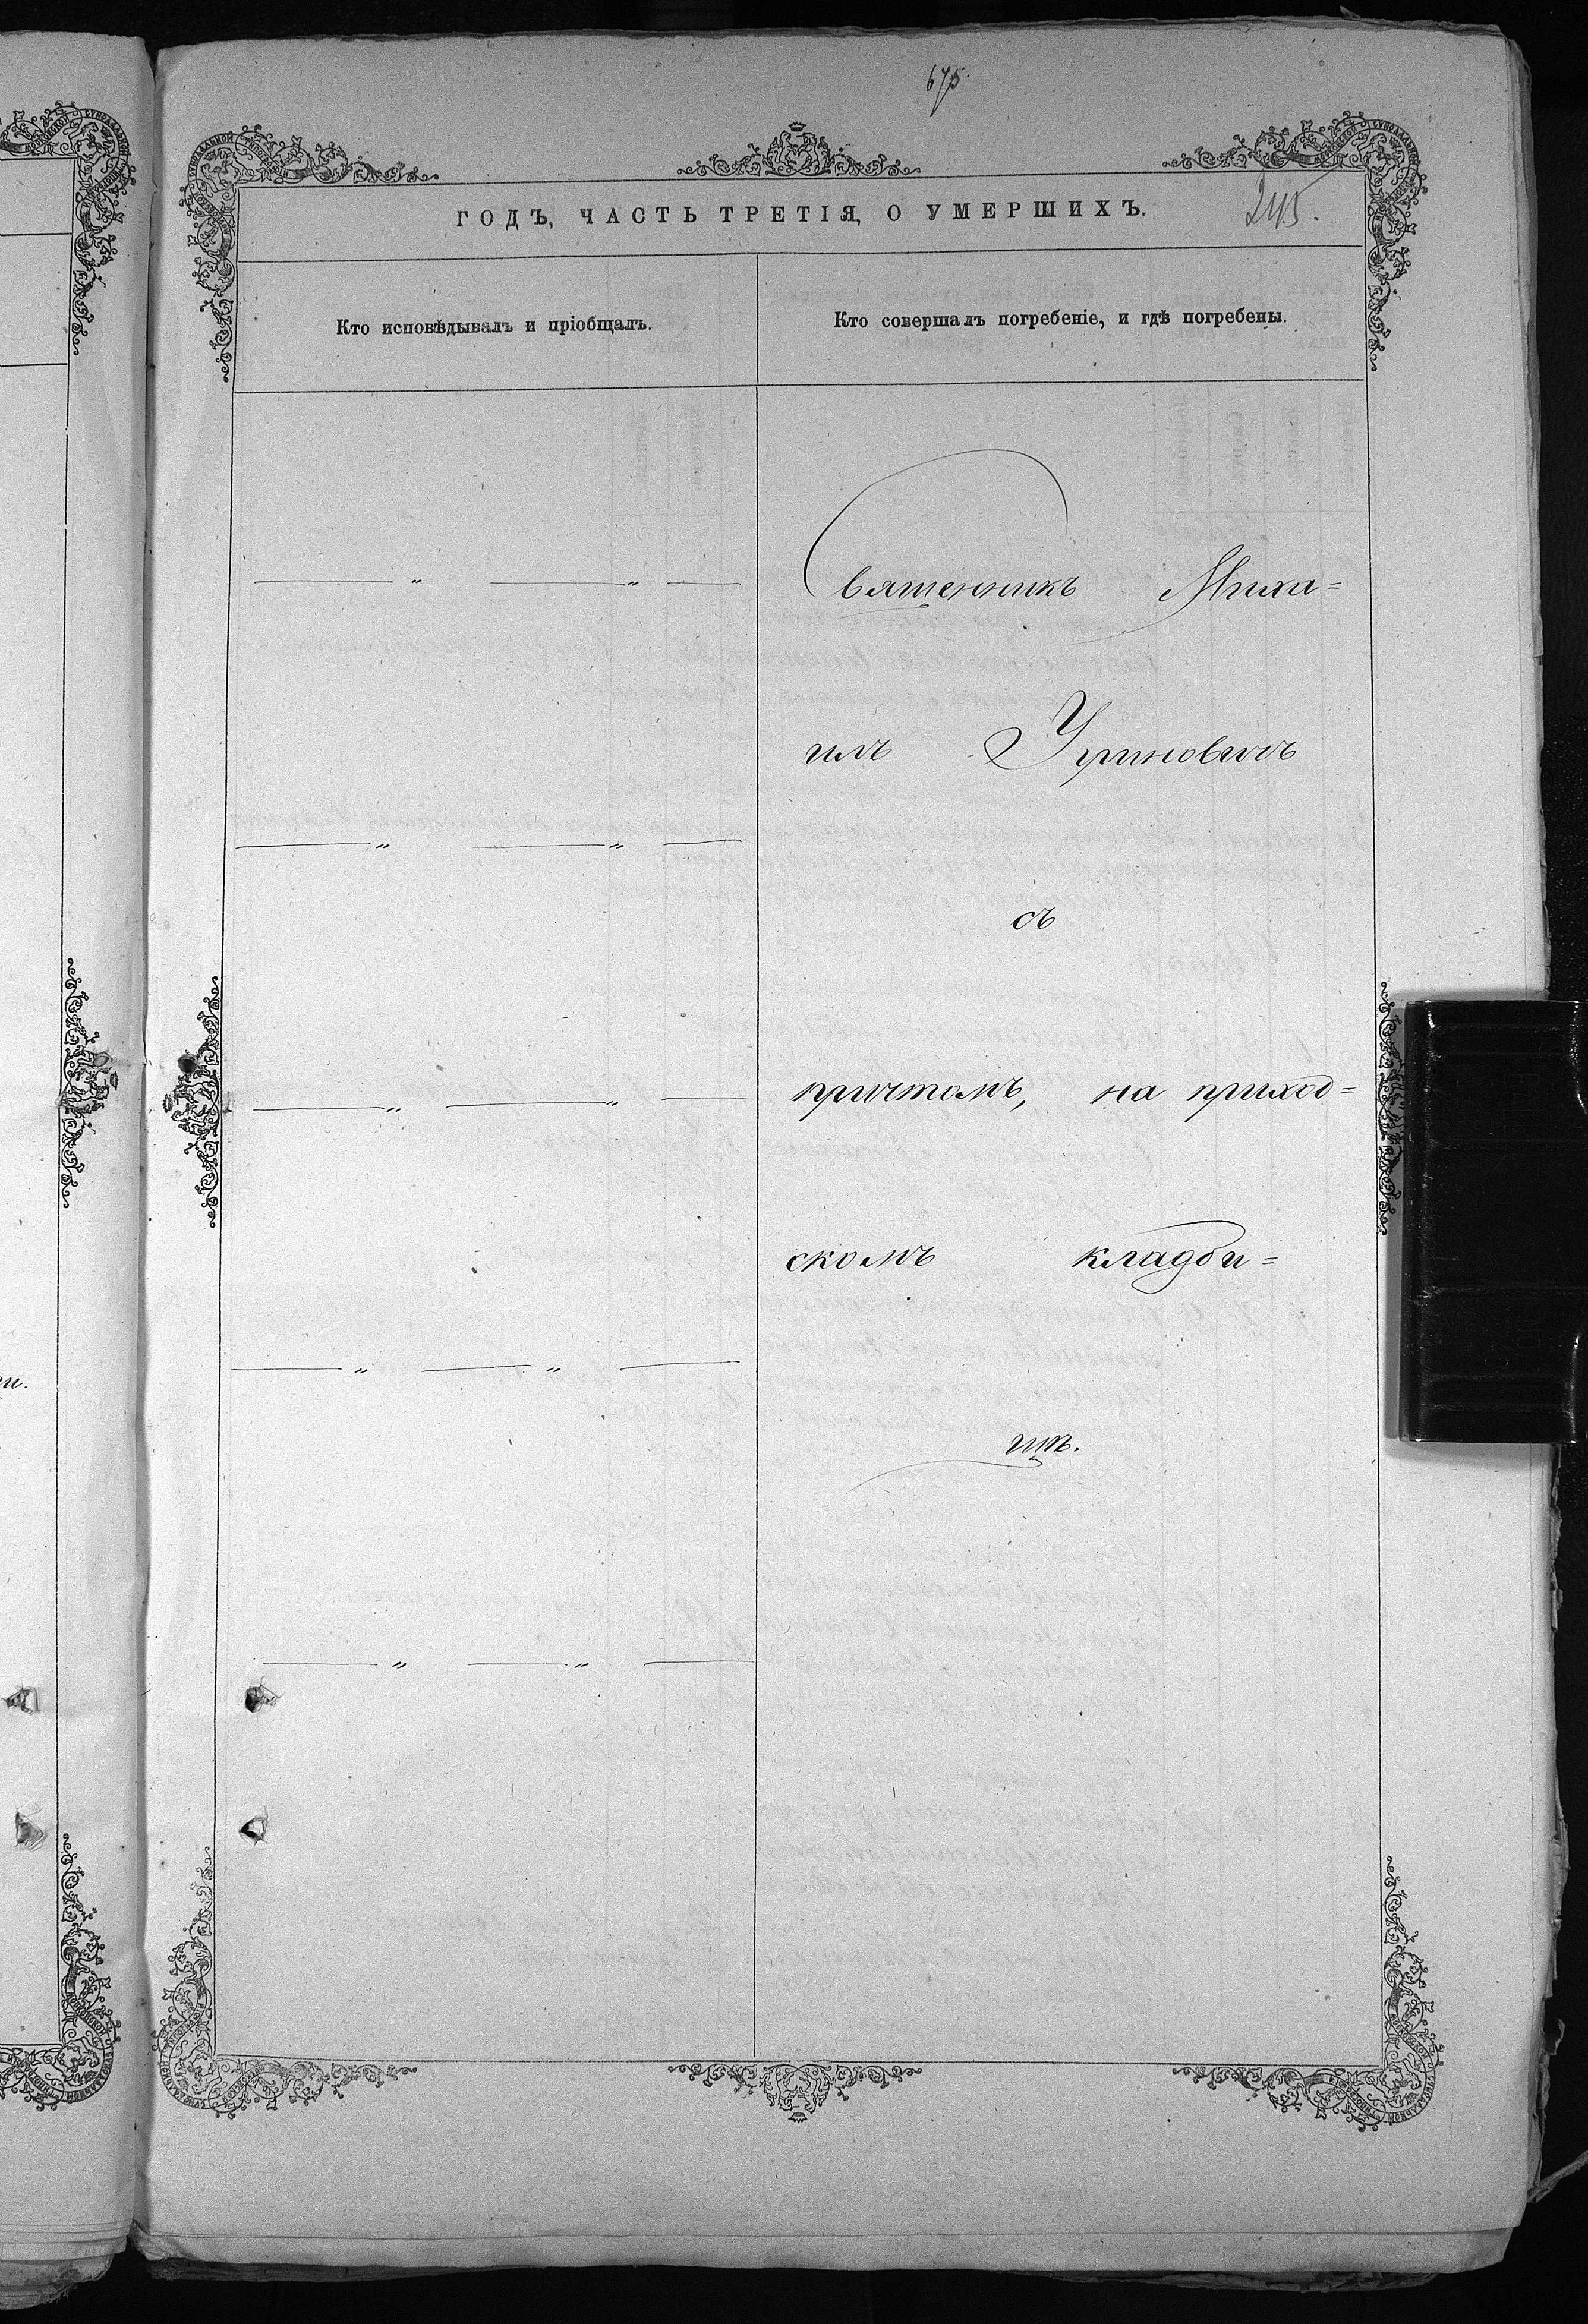 675.
ГОДЪ, ЧАСТЬ ТРЕТІЯ, О УМЕРШИХЪ.
245.
Кто исповѣдывалъ и пріобщалъ.
Кто совершалъ погребеніе, и гдѣ погребены.
— „ — „ — Священникъ Миха=
илъ Угриновичъ
— „ — „ —
съ
— „ — „ — причтомъ, на приход=
скомъ кладби=
— „ — „ —
щѣ.
— „ — „ —